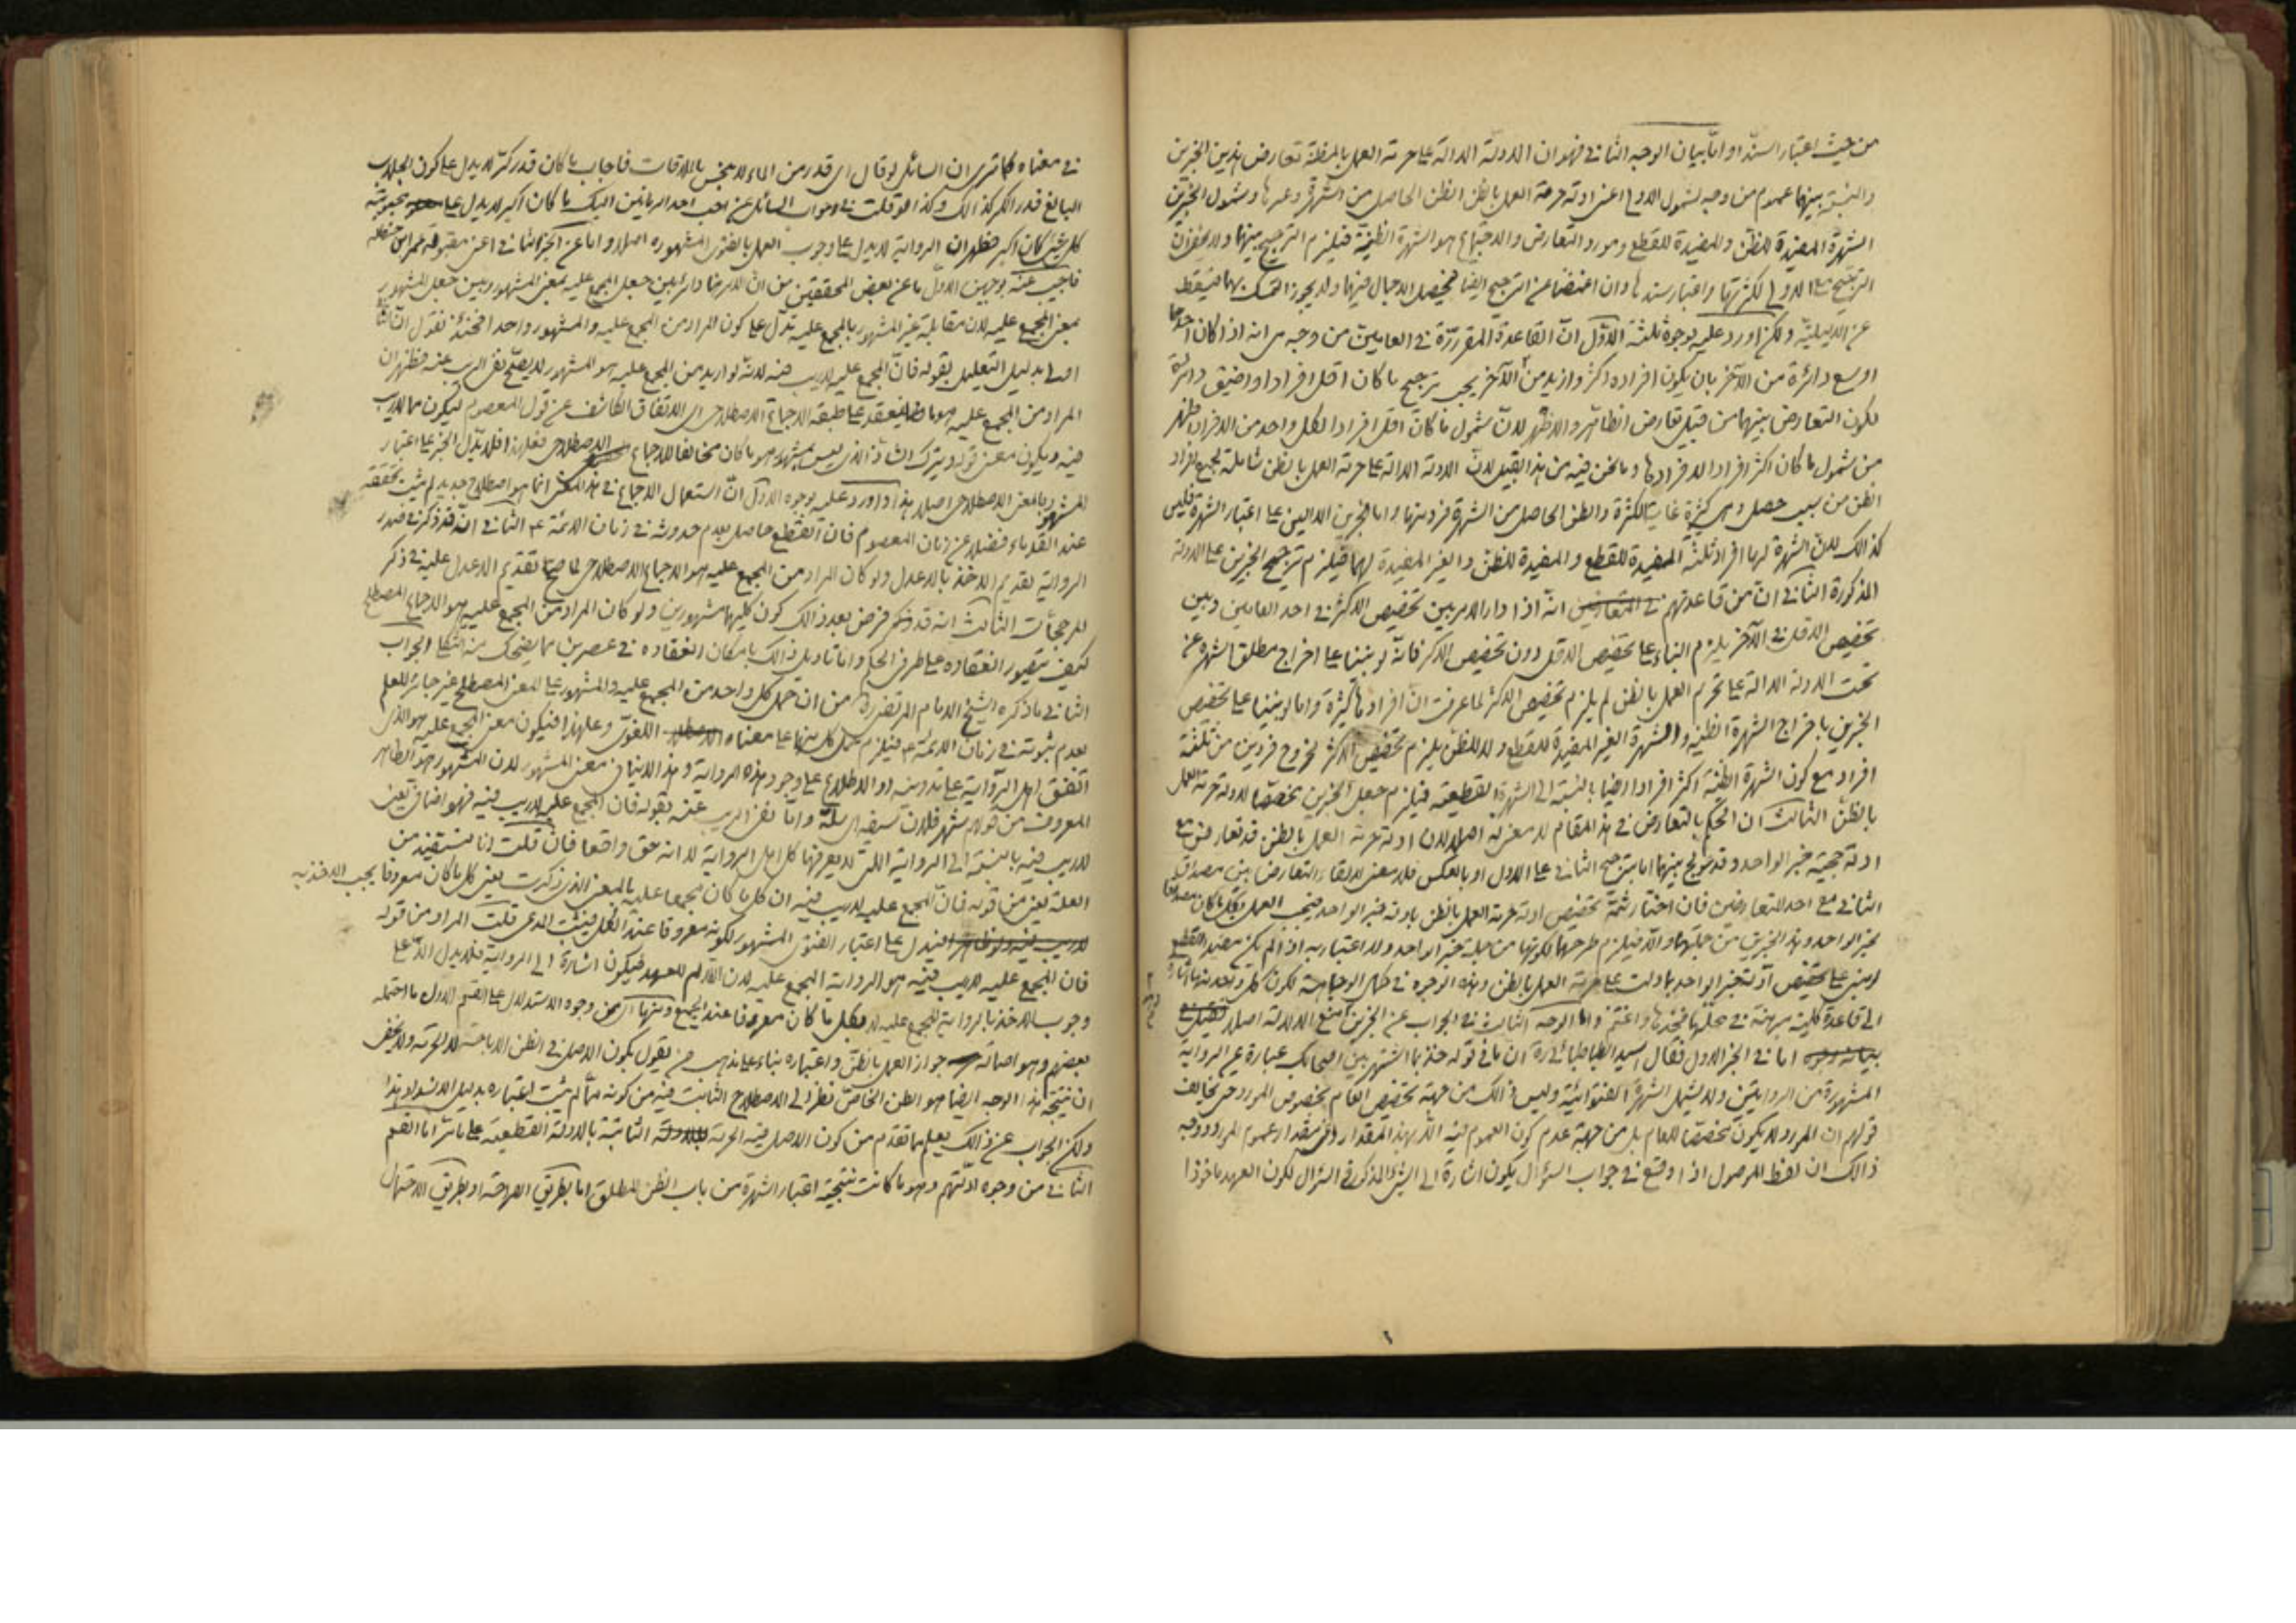 من حيث اعتبار السند او اما بيان الوجه الثاني فهو ان الادلة الدالة على حرمة العمل بالمظنة تعارض هذين الخبرين
والنسبة بينهما عموم من وجه لشمول الاولى اعنى ادلة حرمة العمل بالظن الظن الحاصل من الشهرة وغيرها وشمول الخبرين
الشهرة المفيدة للظن والمفيدة للقطع ومورد التعارض والاجتماع هو الشهرة الظنية فيلزم الترجيح بينهما ولا يخفى ان
الترجيح مع الاولى لكثرتها واعتبار سندها وان اغمضنا عن الترجيح ايضا فيحصل الاجمال فيهما ولا يجوز التمسك بهما فيسقط
عن الدليلية ولكن اورد عليه بوجوه ثلثة الاول ان القاعدة المقررة في العامين من وجه هي انه اذا كان احدهما
اوسع دائرة من الآخر بان يكون افراده اكثر وازيد من الآخر يجب ترجيح ما كان اقل افرادا واضيق دائرة
لكون التعارض بينهما من قبيل تعارض الظاهر والاظهر لان شمول ما كان اقل افرادا لكل واحد من الافراد اظهر
من شمول ما كان اكثر افرادا لافرادها وما نحن فيه من هذا القبيل لان الادلة الدالة على حرمة العمل بالظن شاملة لجميع افراد
الظن من سبب حصل وهي كثيرة غاية الكثرة والظن الحاصل من الشهرة فرد منها واما الخبرين الدالين على اعتبار الشهرة فليس
كذالك لان الشهرة لها افراد ثلثة المفيدة للقطع والمفيدة للظن والغير المفيدة لهما فيلزم ترجيح الخبرين على الادلة
المذكورة الثاني ان من قاعدتهم في التعارض انه اذا دار الامر بين تخصيص الاكثر في احد العامين وبين
تخصيص الاقل في الآخر يلزم البناء على تخصيص الاقل دون تخصيص الاكثر فانه لو بنينا على اخراج مطلق الشهرة عن
تحت الادلة الدالة على تحريم العمل بالظن لم يلزم تخصيص الاكثر لما عرفت ان افرادها كثيرة واما لو بنينا على تخصيص
الخبرين باخراج الشهرة الظنية والشهرة الغير المفيدة للقطع ولا للظن يلزم تخصيص الاكثر لخروج فردين من ثلثة
افراد مع كون الشهرة الظنية اكثر افرادا ايضا بالنسبة الى الشهرة القطعية فيلزم جعل الخبرين مخصصا لادلة حرمة العمل
بالظن الثالث ان الحكم بالتعارض في هذا المقام لا معنى له اصلا لان ادلة حرمة العمل بالظن قد تعارض مع
ادلة حجية خبر الواحد وقد عولج بينهما اما بترجيح الثاني على الاول او بالعكس فلا معنى لابقاء التعارض بين مصداق
الثاني مع احد المتعارضين فان اختار ثمة تخصيص ادلة حرمة العمل بالظن بادلة خبر الواحد فيجب العمل بكل ما كان مصداقا
لخبر الواحد وهذا الخبرين من جملتها والا فيلزم طرحهما لكونهما من جملة خبر الواحد ولا اعتبار به اذا لم يكن مفيدا للقطع
الى قاعدة كلية مبرهنة في محلها فخذها واغتنم واما الوجه الثالث في الجواب عن الخبرين منع الدلالة اصلا
اما في الخبر الاول فقال السيد الطباطبائي ره ان ما في قوله خذ بما اشتهر بين اصحابك عبارة عن الرواية
المشهورة من الروايتين ولا يشمل الشهرة الفتوائية وليس ذالك من جهة تخصيص العام بخصوص المورد حتى يخالف
قولهم ان المورد لا يكون مخصصا للعام بل من جهة عدم كون العموم فيه الا بهذا المقدار اى مقدار عموم المورد ووجه
ذالك ان لفظ الموصول اذا وقع في جواب السؤال يكون اشارة الى الشئ المذكور في السؤال لكون العهد ماخوذا
في معناه كما ترى ان السائل لو قال اى قدر من الماء لا ينجس بالملاقات فاجاب ما كان قدر كر لا يدل على كون الجلاب
البالغ قدر الكر كذالك وكذا لو قلت في جواب السائل عن احب احد الرمانين اليك ما كان اكبر لا يدل على محبوبية
كل شئ كان اكبر فظهر ان الرواية لا يدل على وجوب العمل بالفتوى المشهورة اصلا واما عن الخبر الثاني اعنى مقبولة عمر ابن حنظلة
فاجيب عنه بوجهين الاول ما عن بعض المحققين من ان الامر هنا دائر بين جعل المجمع عليه بمعنى المشهور وبين جعل المشهور
بمعنى المجمع عليه لان مقابلة غير المشهور بالمجمع عليه تدل على كون المراد من المجمع عليه والمشهور واحدا فحينئذ نقول ان الثاني
اولى بدليل التعليل بقوله فان المجمع عليه لا ريب فيه لانه لو اريد من المجمع عليه هو المشهور لا يصح نفى الريب عنه فظهر ان
المراد من المجمع عليه هو ما ينعقد على طبقه الاجماع الاصطلاحى اى الاتفاق الكاشف عن قول المعصوم ليكون مما لا ريب
فيه ويكون معنى قوله ويترك الشاذ الذى ليس بمشهور هو ما كان مخالفا للاجماع الاصطلاحى فعلى هذا فلا يدل الخبر على اعتبار
المشهور بالمعنى الاصطلاحى اصلا هذا واورد عليه بوجوه الاول ان استعمال الاجماع في هذا المعنى انما هو اصطلاح جديد لم يثبت تحققه
عند القدماء فضلا عن زمان المعصوم فان القطع حاصل بعدم حدوثه في زمان الائمة ع الثاني انه قد ذكر في صدر
الرواية تقديم الاخذ بالاعدل ولو كان المراد من المجمع عليه هو الاجماع الاصطلاحى لما صح تقديم الاعدل عليه في ذكر
المرجحات الثالث انه قد فرض بعد ذالك كون كليهما مشهورين ولو كان المراد من المجمع عليه هو الاجماع المصطلح
كيف يتصور انعقاده على طرفى الحكم واما تاويل ذالك بامكان انعقاده في عصرين مما يضحك منه الثكلى الجواب
الثاني ما ذكره الشيخ الامام المرتضى ره من ان حمل كل واحد من المجمع عليه والمشهور على المعنى المصطلح غير جائز للعلم
بعدم ثبوته في زمان الائمة ع فيلزم حمل كل منهما على معناه اللغوى وعلى هذا فيكون معنى المجمع عليه هو الذى
اتفق اهل الرواية على تدوينه او الاطلاع على وجود هذه الرواية وهذا لا ينافى معنى المشهور لان المشهور هو الظاهر
المعروف من قولهم شهر فلان سيفه اى سله واما نفى الريب عنه بقوله فان المجمع عليه لا ريب فيه فهو اضافى يعنى
لا ريب فيه بالنسبة الى الرواية التى لا يعرفها كل اهل الرواية لا انه حق واقعا فان قلت انا نستفيد من
العلة يعنى من قوله فان المجمع عليه لا ريب فيه ان كل ما كان مجمعا عليه بالمعنى الذى ذكرت يعنى كل ما كان معروفا يجب الاخذ به
فيدل على اعتبار الفتوى المشهور لكونه معروفا عند الكل فيثبت المدعى قلت المراد من قوله
فان المجمع عليه لا ريب فيه هو الرواية المجمع عليه لان اللام للعهد فيكون اشارة الى الرواية فلا يدل الا على
وجوب الاخذ بالرواية المجمع عليه لا بكل ما كان معروفا عند الجميع ومنها اى من وجوه الاستدلال على القسم الاول ما احتمله
بعضهم وهو اصالة جواز العمل بالظن واعتباره بناء على مذهب من يقول بكون الاصل في الظن الاباحة لا الحرمة ولا يخفى
ان نتيجة هذا الوجه ايضا هو الظن الخاص نظرا الى الاصطلاح الثابت فيه من كونه مما لم يثبت اعتباره بدليل الانسداد هذا
ولكن الجواب عن ذالك يعلم مما تقدم من كون الاصل فيه الحرمة الثابتة بالادلة القطعية على ما مر اما القسم
الثاني من وجوه ادلتهم وهو ما كانت نتيجة اعتبار الشهرة من باب الظن المطلق اما بطريق الصراحة او بطريق الاحتمال